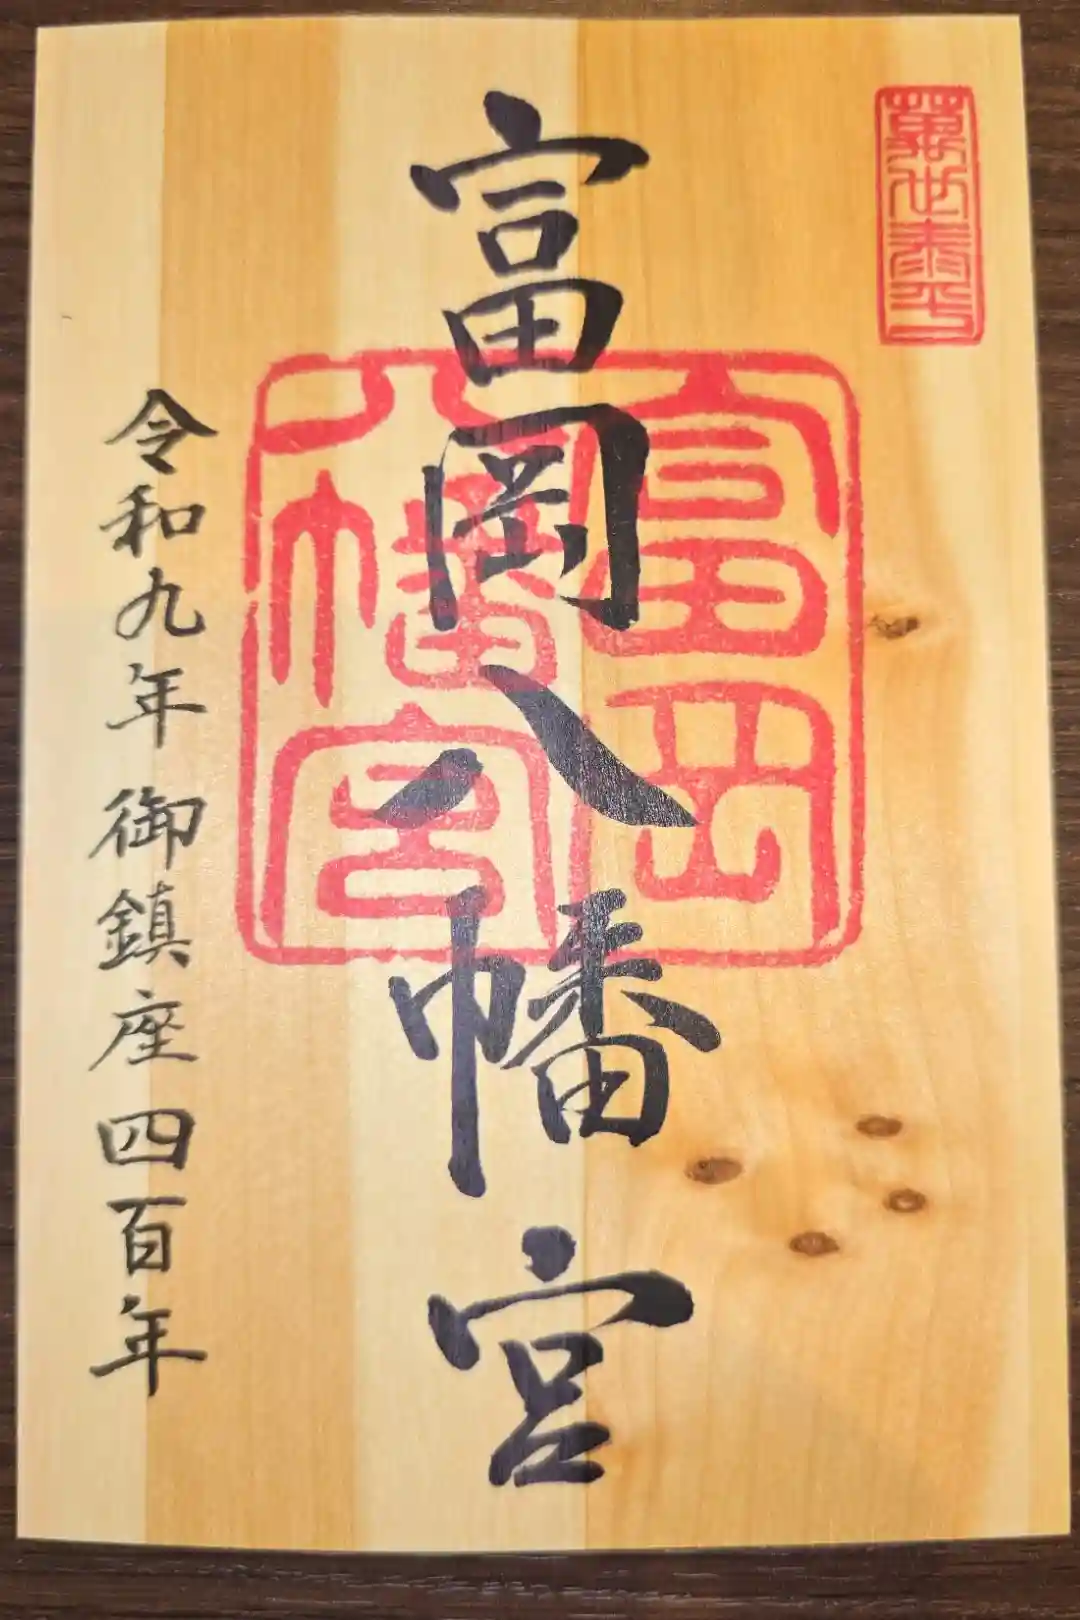 萬世泰平
富岡八幡宮
富岡
八幡宮
令和九年 御鎮座四百年